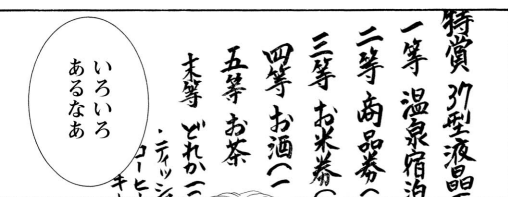 特賞 37型液晶
一等 温泉宿泊
二等 商品券(
三等 お米券(
四等 お酒(一
五等 お茶
末等 どれか一
・ティッシ
コーヒー
キ
いろいろ
あるなあ